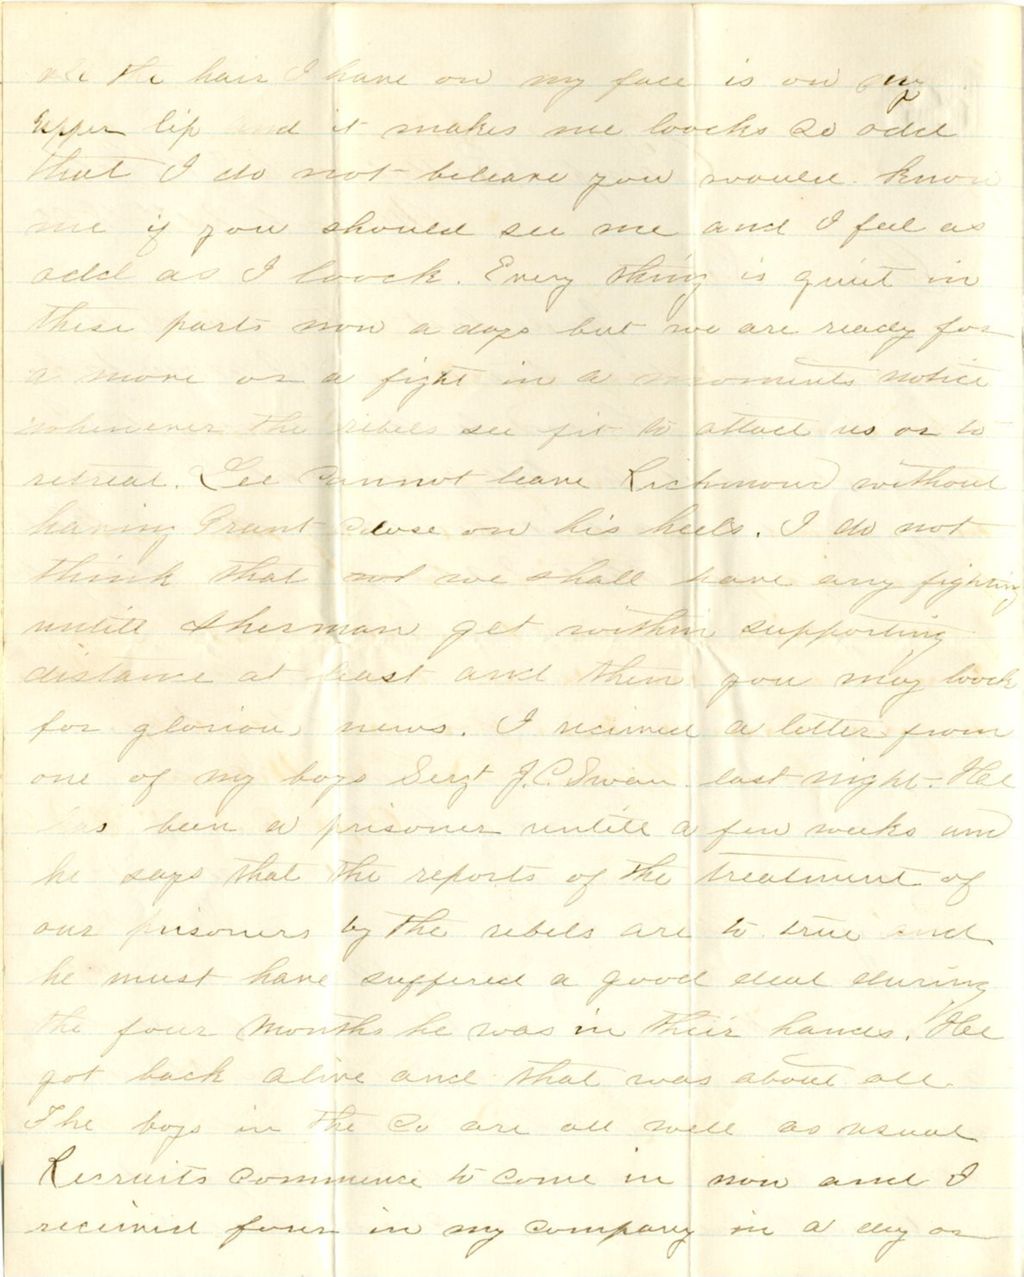 all the hair I have on my face is on my
upper lip and it makes me loocks so odd
that I do not beleave you would know
me if you should see me and I feel as
odd as I loock. Every thing is quiet in
these parts now a days but we are ready for
a move or a fight in a moments notice
whenever the rebels see fit to attack us or to
retreat. Lee cannot leave Richmond without
having Grant close on his heels. I do not
think that we shall have any fighting
untill Sherman get within supporting
distance at least and then you may loock
for glorious news. I recieved a letter from
one of my boys Sergt J.C. Swan last night. He
has been a prisoner untill a few weeks and
he says that the reports of the treatment of
our prisoners by the rebels are to true and
he must have suffered a good deal during
the four months he was in their hands. He
got back alive and that was about all.
The boys in the Co are all well as usual
Recruits commence to come in now and I
recieved four in my company in a day or